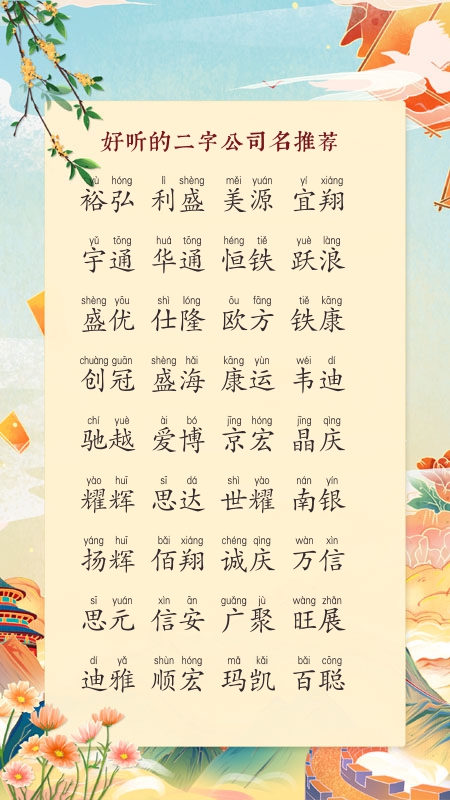 好听的二字公司名推荐
yù hóng lì shèng měi yuán yí xiáng
裕弘 利盛 美源 宜翔
yǔ tōng huá tōng héng tiě yuè làng
宇通 华通 恒铁 跃浪
shèng yōu shì lóng ōu fāng tiě kāng
盛优 仕隆 欧方 铁康
chuàng guān shèng hǎi kāng yùn wéi dí
创冠 盛海 康运 韦迪
chí yuè ài bó jīng hóng jīng qìng
驰越 爱博 京宏 晶庆
yào huī sī dá shì yào nán yín
耀辉 思达 世耀 南银
yáng huī bǎi xiáng chéng qìng wàn xìn
扬辉 佰翔 诚庆 万信
sī yuán xìn ān guǎng jù wàng zhǎn
思元 信安 广聚 旺展
dí yǎ shùn hóng mǎ kǎi bǎi cōng
迪雅 顺宏 玛凯 百聪